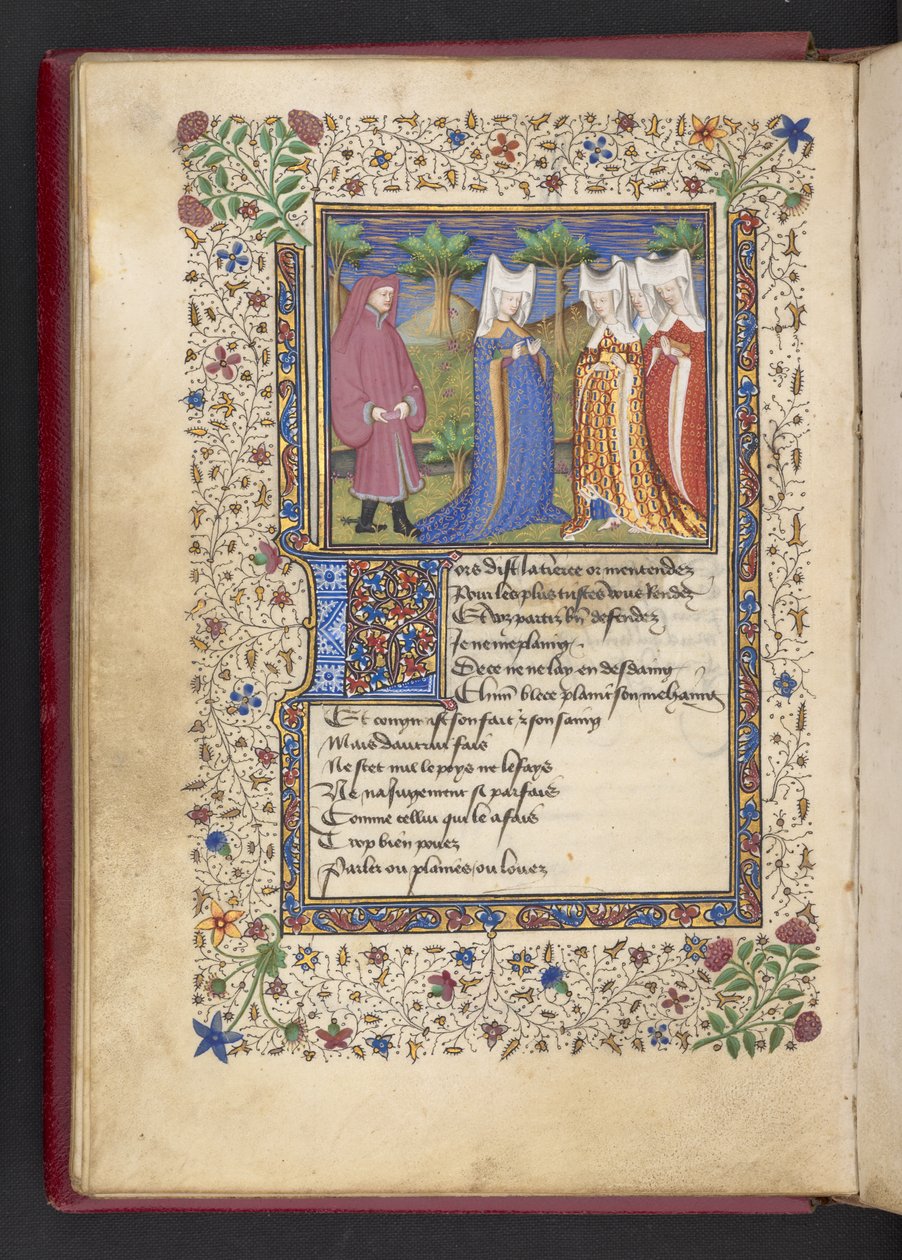 Lors dist la tierce or mentendez
Pour les plus tristes vous rendez
Et voz partiz bn defendez
Je ne me plaing
De ce ne ne lay en desdaing
Chun blece plaint son mehaing
Et congnoist son fait & son saing
Mais dautrui fais
Ne scet nul le poys ne le fays
Ne na iugement si parfais
Comme cellui qui le a fais
Trop bien pouez
Parler ou plaindre ou louez